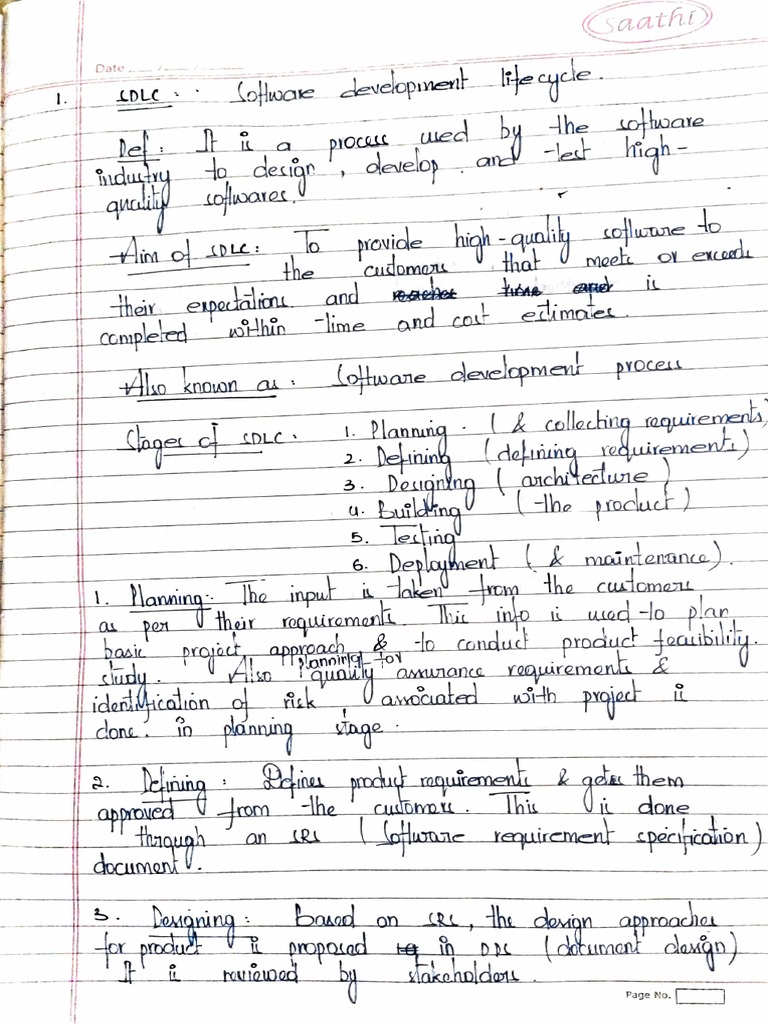 saathi
Date
1. SDLC : Software development lifecycle.
Def : It is a process used by the software
industry to design, develop and test high-
quality softwares.
Aim of SDLC : To provide high-quality software to
the customers that meets or exceeds
their expectations and is
completed within time and cost estimates.
Also known as : Software development process
Stages of SDLC : 1. Planning. ( & collecting requirements)
2. Defining (defining requirements)
3. Designing ( architecture )
4. Building ( the product )
5. Testing
6. Deployment ( & maintenance).
1. Planning : The input is taken from the customers
as per their requirements. This info is used to plan
basic project approach & to conduct product feasibility.
study. Also planning for quality assurance requirements &
identification of risk associated with project is
done. in planning stage.
2. Defining : Defines product requirements & gets them
approved from the customers. This is done
through an SRS (Software requirement specification)
document.
3. Designing : Based on SRS, the design approaches
for product is proposed in DDS (document design)
It is reviewed by stakeholders.
Page No.